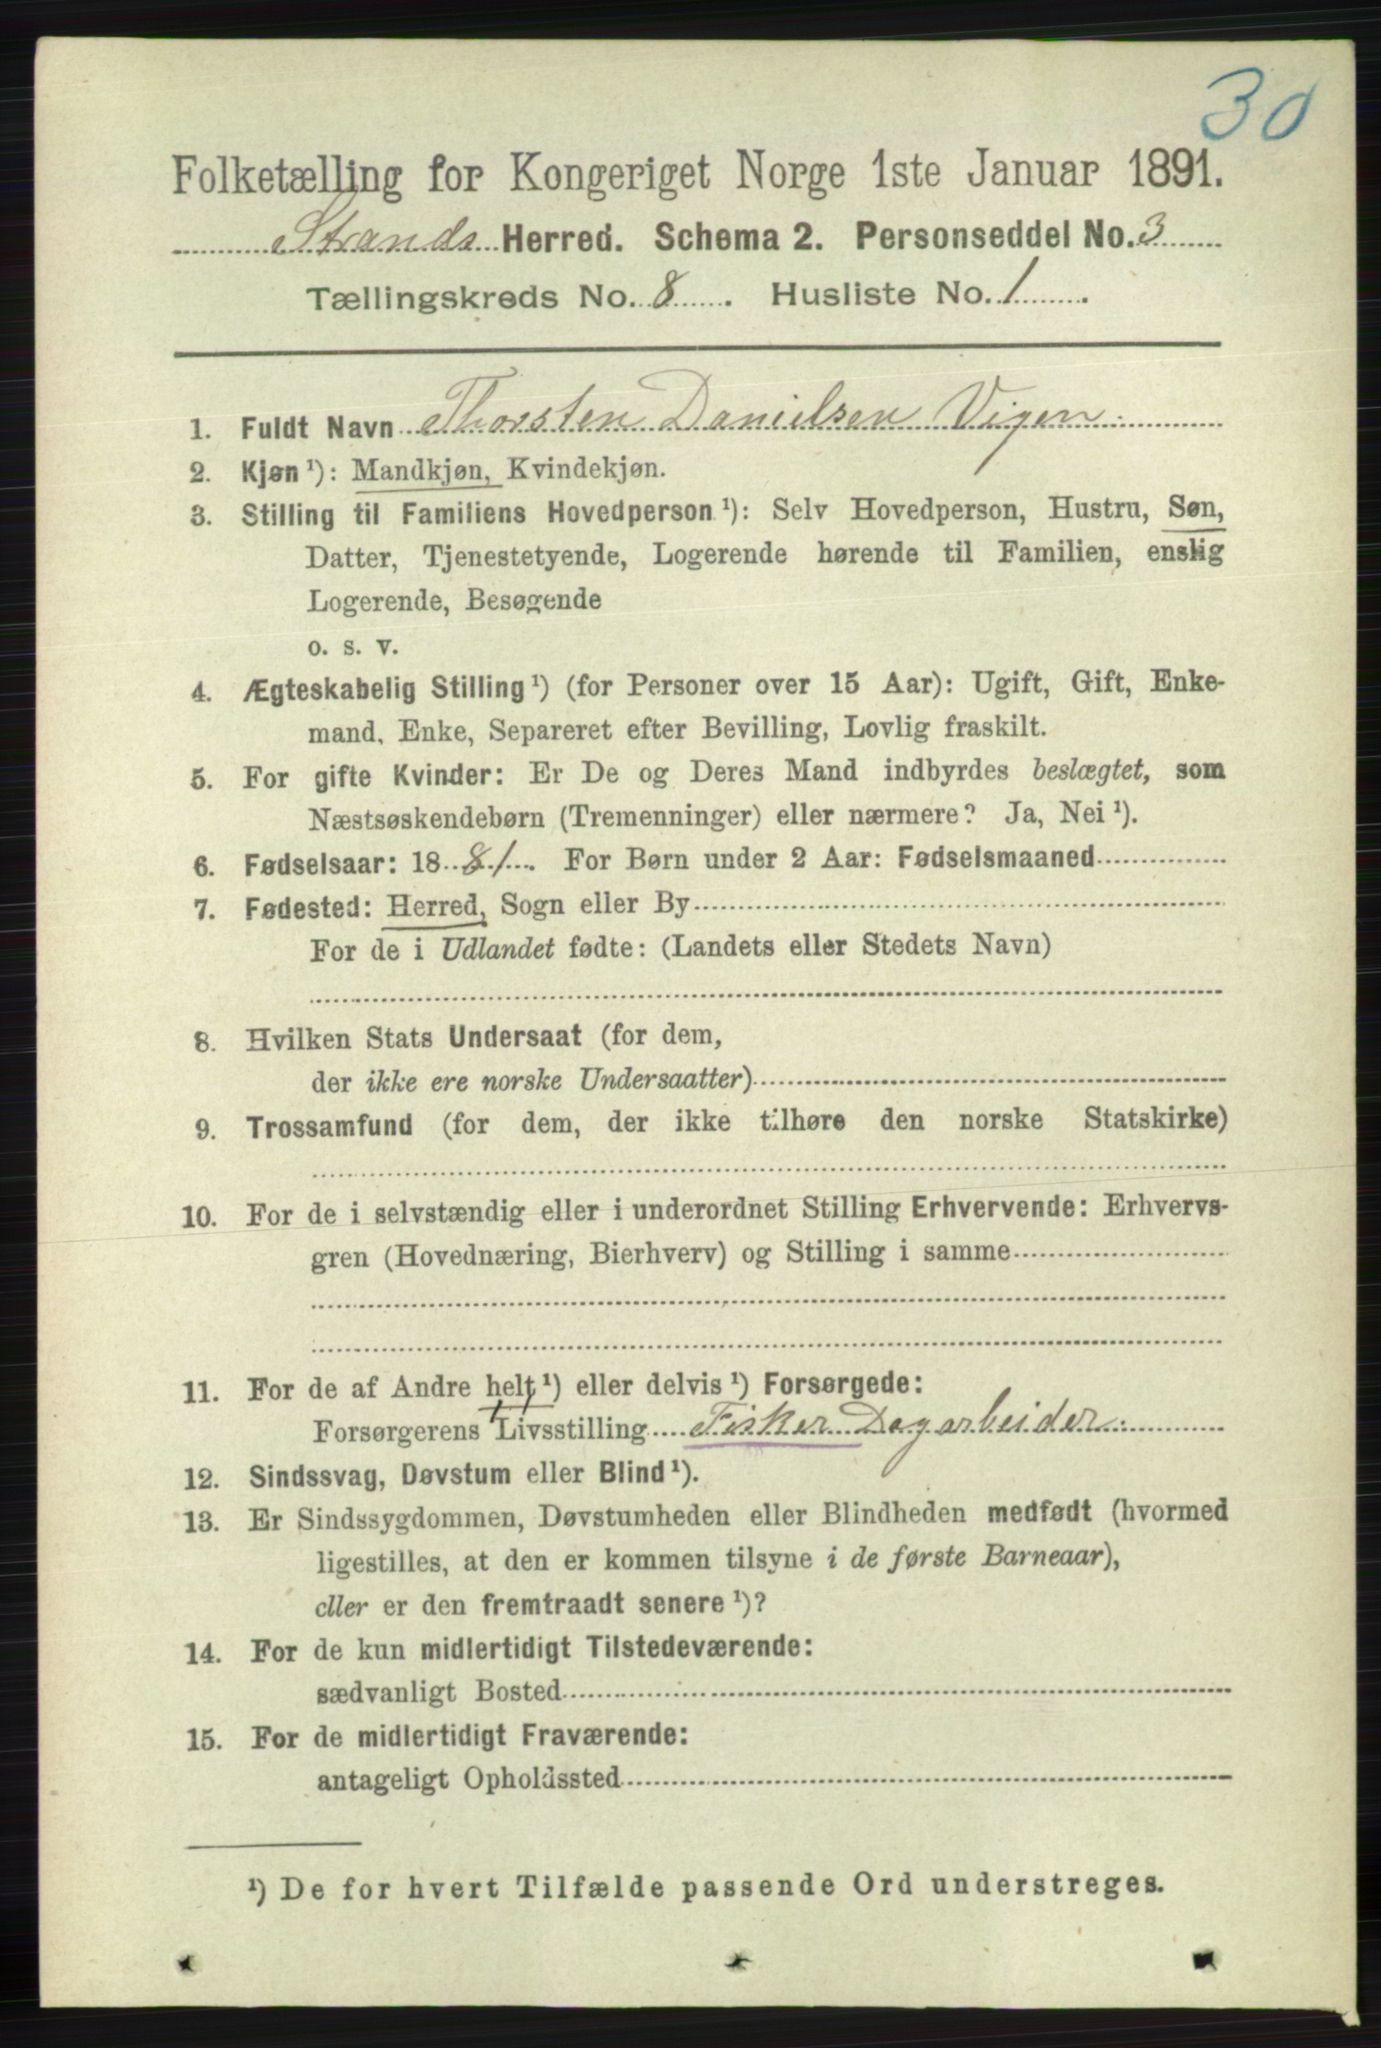 30
Folketælling for Kongeriget Norge 1ste Januar 1891.
Strands Herred. Schema 2. Personseddel No. 3
Tællingskreds No. 8. Husliste No. 1.
1. Fuldt Navn Thorsten Danielsen Vigen.
2. Kjøn ¹): Mandkjøn, Kvindekjøn.
3. Stilling til Familiens Hovedperson ¹): Selv Hovedperson, Hustru, Søn,
Datter, Tjenestetyende, Logerende hørende til Familien, enslig
Logerende, Besøgende
o. s. v.
4. Ægteskabelig Stilling ¹) (for Personer over 15 Aar): Ugift, Gift, Enke-
mand, Enke, Separeret efter Bevilling, Lovlig fraskilt.
5. For gifte Kvinder: Er De og Deres Mand indbyrdes beslægtet, som
Næstsøskendebørn (Tremenninger) eller nærmere? Ja, Nei ¹).
6. Fødselsaar: 1881. For Børn under 2 Aar: Fødselsmaaned
7. Fødested: Herred, Sogn eller By
For de i Udlandet fødte: (Landets eller Stedets Navn)
8. Hvilken Stats Undersaat (for dem,
der ikke ere norske Undersaatter)
9. Trossamfund (for dem, der ikke tilhøre den norske Statskirke)
10. For de i selvstændig eller i underordnet Stilling Erhvervende: Erhvervs-
gren (Hovednæring, Bierhverv) og Stilling i samme
11. For de af Andre helt ¹) eller delvis ¹) Forsørgede:
Forsørgerens Livsstilling Fisker Dagarbeider.
12. Sindssvag, Døvstum eller Blind ¹).
13. Er Sindssygdommen, Døvstumheden eller Blindheden medfødt (hvormed
ligestilles, at den er kommen tilsyne i de første Barneaar),
eller er den fremtraadt senere ¹)?
14. For de kun midlertidigt Tilstedeværende:
sædvanligt Bosted
15. For de midlertidigt Fraværende:
antageligt Opholdssted
¹) De for hvert Tilfælde passende Ord understreges.